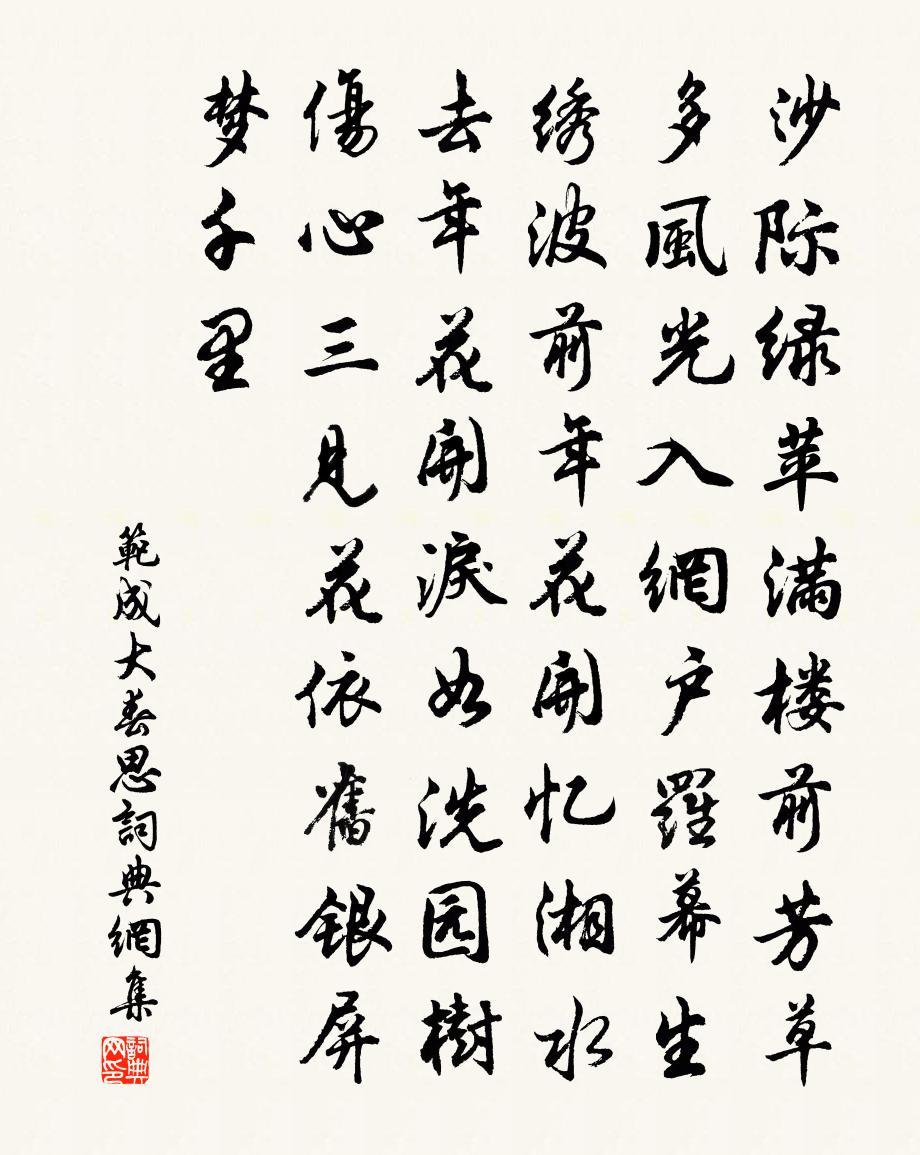 沙际绿苹满楼前芳草
多風光入網户羅幕生
绣波前年花開忆湘水
去年花開淚如洗园樹
傷心三見花依舊銀屏
梦千里
範成大春思詞典網集
詞典网印